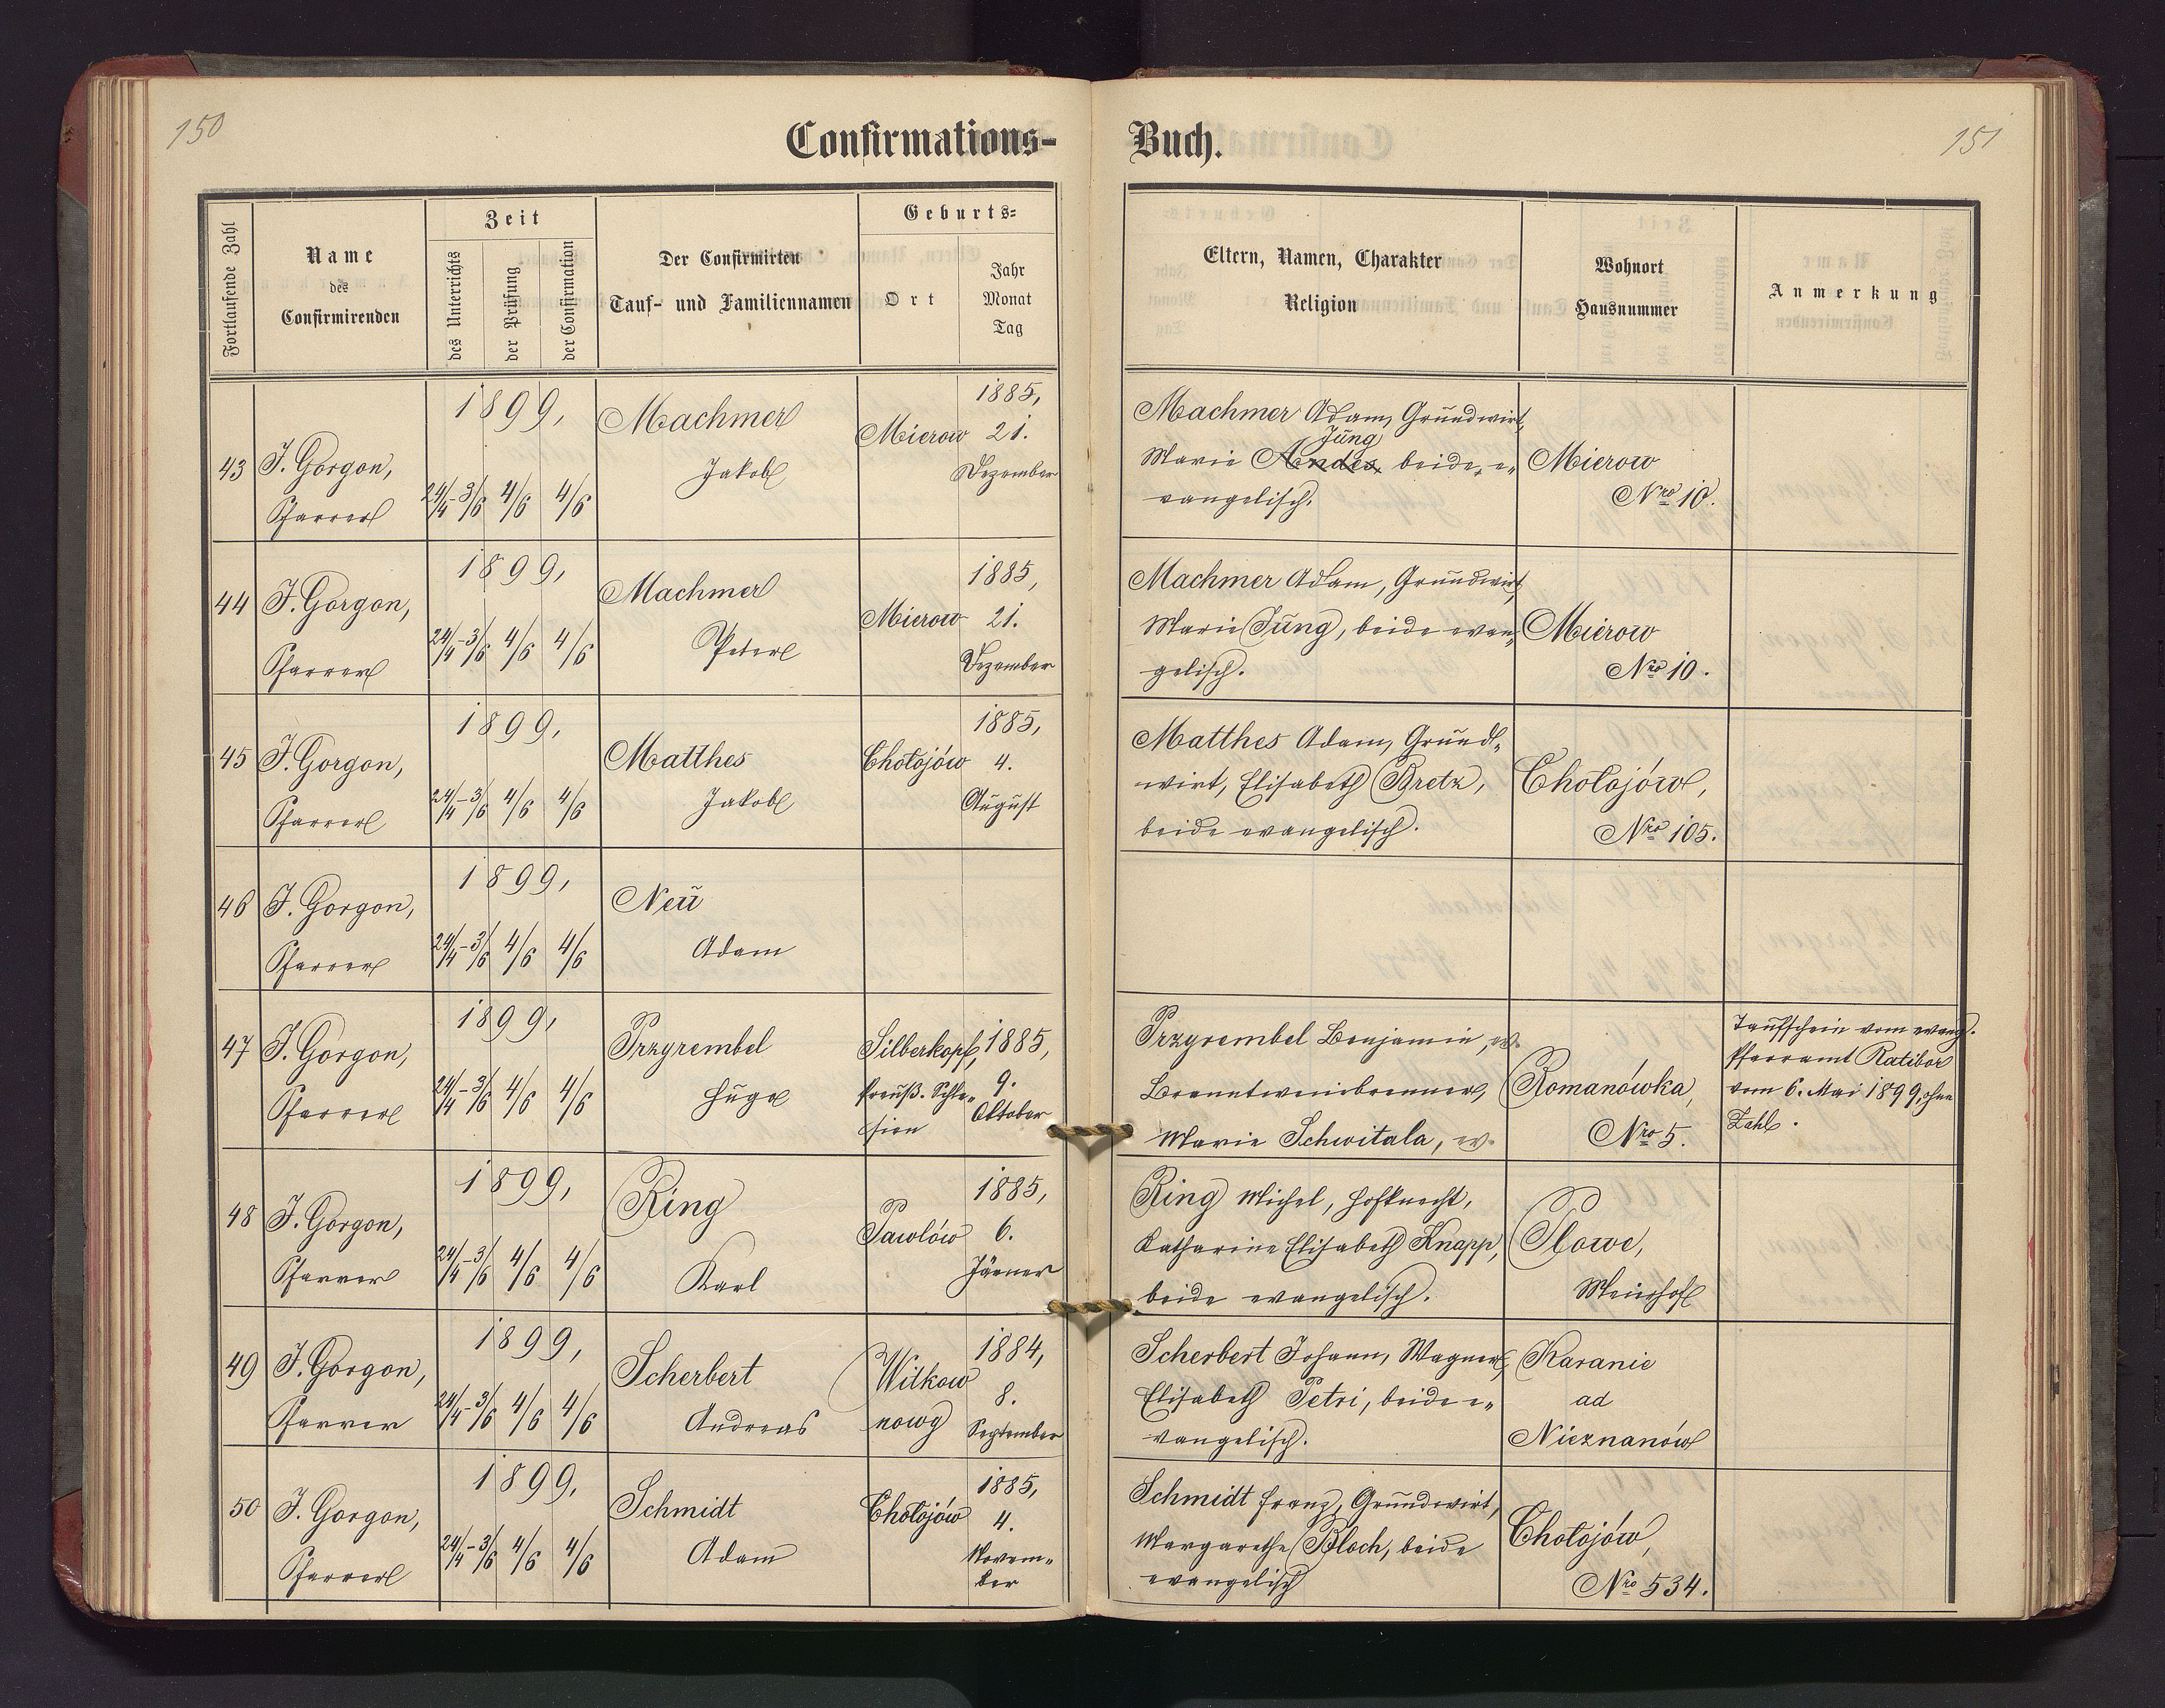 150
151
Confirmations-
Buch.
Fortlaufende Zahl
Name
des
Confirmirenden
Zeit
des Unterrichts
der Prüfung
der Confirmation
Der Confirmirten
Tauf- und Familiennamen
Geburts-
Ort
Jahr
Monat
Tag
Eltern, Namen, Charakter
Religion
Wohnort
Hausnummer
Anmerkung
43
J. Gorgon,
Pfarrer
1899,
24/4-3/6 4/6 4/6
Machmer
Jakob
Mierow
1885,
21.
Dezember
Machmer Adam, Grundwirt,
Jung
Marie Andes, beide e-
vangelisch.
Mierow
Nro 10.
44
J. Gorgon,
Pfarrer
1899,
24/4-3/6 4/6 4/6
Machmer
Peter
Mierow
1885,
21.
Dezember
Machmer Adam, Grundwirt,
Marie Jung, beide evan-
gelisch.
Mierow
Nro 10.
45
J. Gorgon,
Pfarrer
1899,
24/4-3/6 4/6 4/6
Matthes
Jakob
Chołojów
1885,
4.
August
Matthes Adam, Grund-
wirt, Elisabeth Bretz,
beide evangelisch.
Chołojów,
Nro 105.
46
J. Gorgon,
Pfarrer
1899,
24/4-3/6 4/6 4/6
Neu
Adam
47
J. Gorgon,
Pfarrer
1899,
24/4-3/6 4/6 4/6
Przyrembel
Hugo
Silberkopf,
Preuß. Schle-
sien
1885,
9.
Oktober
Przyrembel Benjamin, ev.
Branntweinbrenner,
Marie Schwitala, ev.
Romanówka,
Nro 5.
Taufschein vom evang.
Pfarramt Ratibor
vom 6. Mai 1899, ohne
Zahl.
48
J. Gorgon,
Pfarrer
1899,
24/4-3/6 4/6 4/6
Ring
Karl
Pawlów
1885,
6.
Jänner
Ring Michel, Hofknecht,
Katharine Elisabeth Knapp,
beide evangelisch.
Płowe,
Meierhof
49
J. Gorgon,
Pfarrer
1899,
24/4-3/6 4/6 4/6
Scherbert
Andreas
Witkow
nowy
1884,
8.
September
Scherbert Johann, Wagner,
Elisabeth Petri, beide e-
vangelisch.
Karanie
ad
Nieznanów
50
J. Gorgon,
Pfarrer
1899,
24/4-3/6 4/6 4/6
Schmidt
Adam
Chołojów
1885,
4.
Novem-
ber
Schmidt Franz, Grundwirt,
Margarethe Bloch, beide
evangelisch
Chołojów,
Nro 534.